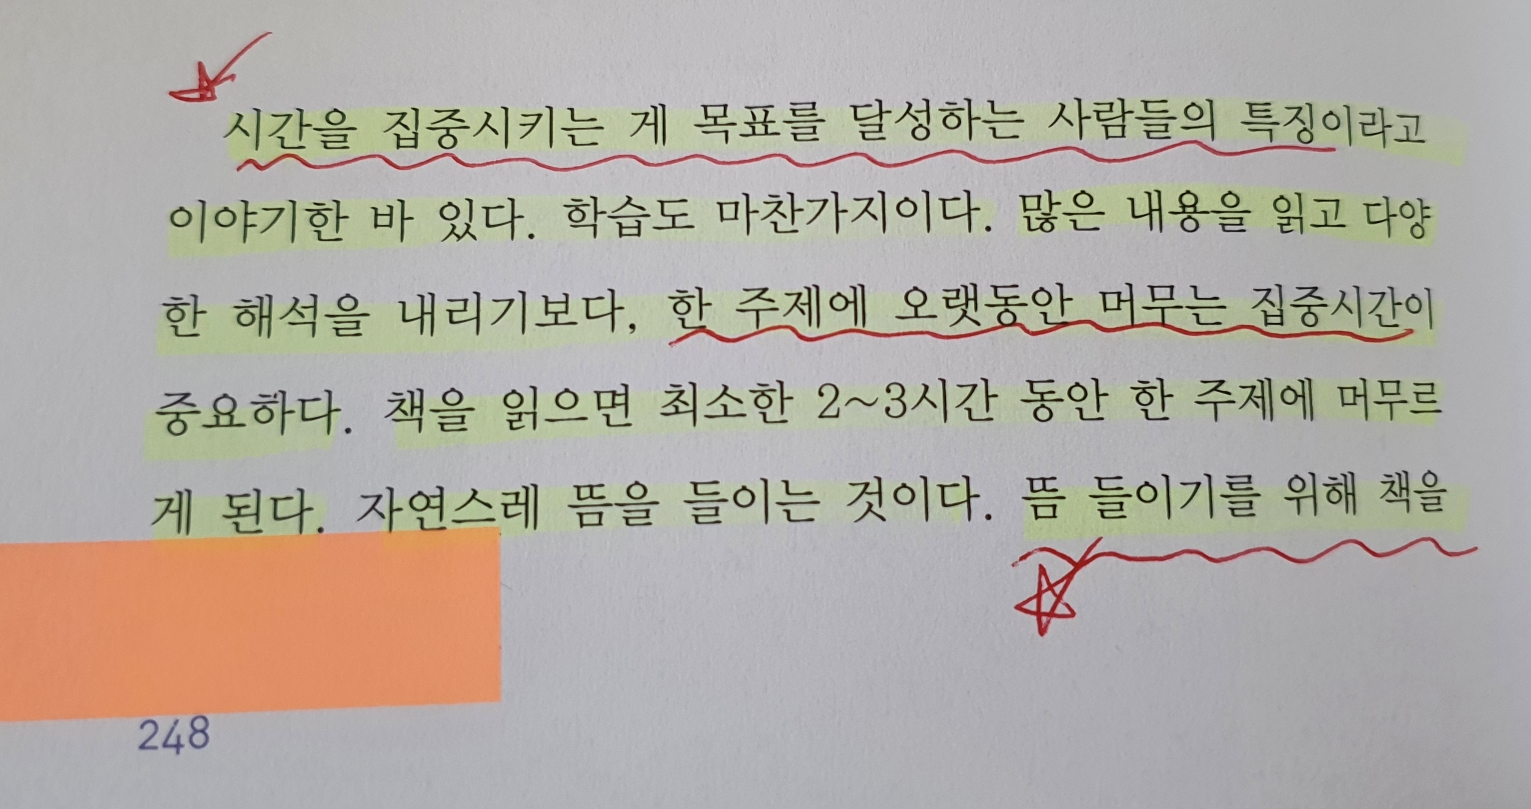 시간을 집중시키는 게 목표를 달성하는 사람들의 특징이라고
이야기한 바 있다. 학습도 마찬가지이다. 많은 내용을 읽고 다양
한 해석을 내리기보다, 한 주제에 오랫동안 머무는 집중시간이
중요하다. 책을 읽으면 최소한 2~3시간 동안 한 주제에 머무르
게 된다. 자연스레 뜸을 들이는 것이다. 뜸 들이기를 위해 책을
248